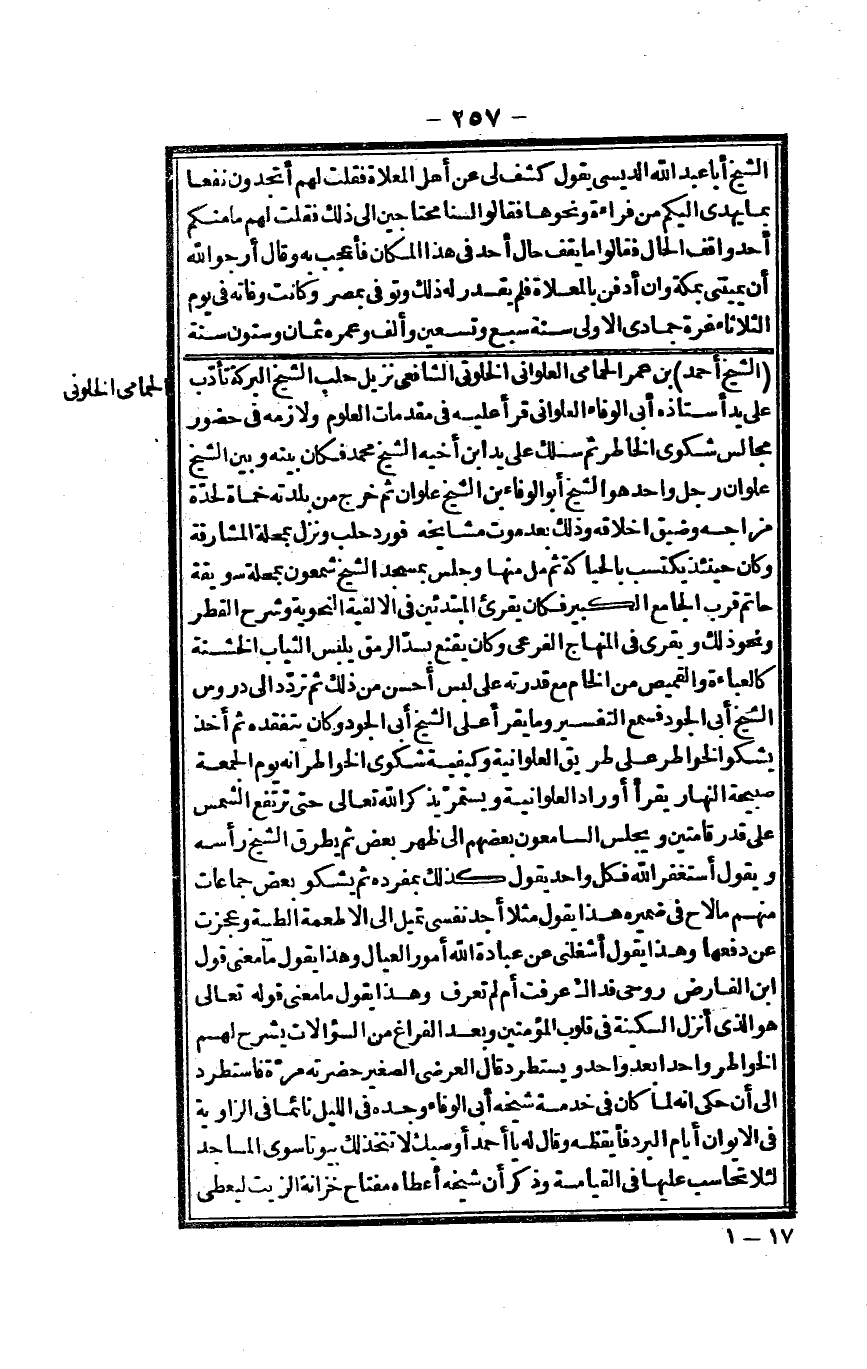 - ٢٥٧ -
الشيخ أبا عبد الله الديسى يقول كشف لى عن أهل المعلاة فقلت لهم أتجدون نفعا
بما يهدى اليكم من قراءة ونحوها فقالوا لسنا محتاجين الى ذلك فقلت لهم ما منكم
أحد واقف الحال فقالوا ما يقف حال أحد فى هذا المكان فأعجب به وقال أرجو الله
أن يميتنى بمكة وان أدفن بالمعلاة فلم يقدر له ذلك وتوفى بمصر وكانت وفاته فى يوم
الثلاثاء غرة جمادى الاولى سنة سبع وتسعين وألف وعمره ثمان وستون سنة
(الشيخ أحمد) بن عمر الحمامى العلوانى الخلوتى الشافعى نزيل حلب الشيخ البركة تأدّب
الحمامى الخلوتى
على يد أستاذه أبى الوفاء العلوانى قرأ عليه فى مقدمات العلوم ولازمه فى حضور
مجالس شكوى الخاطر ثم سلك على يد ابن أخيه الشيخ محمد فكان بينه وبين الشيخ
علوان رجل واحد هو الشيخ أبو الوفاء بن الشيخ علوان ثم خرج من بلدته حماة لحدّة
مزاجه وضيق اخلاقه وذلك بعد موت مشايخه فورد حلب ونزل بمحلة المشارقة
وكان حينئذ يكتسب بالحياكة ثم مل منها وجلس بمسجد الشيخ شمعون بمحلة سويقة
حاتم قرب الجامع الكبير فكان يقرئ المبتدئين فى الالفية النحوية وشرح القطر
ونحو ذلك ويقرى فى المنهاج الفرعى وكان يقنع بسدّ الرمق يلبس الثياب الخشنة
كالعباءة والقميص من الخام مع قدرته على لبس أحسن من ذلك ثم تردّد الى دروس
الشيخ أبى الجود فسمع التفسير وما يقرأ على الشيخ أبى الجود وكان يتفقده ثم أخذ
يشكو الخواطر على طريق العلوانية وكيفية شكوى الخواطر انه يوم الجمعة
صبيحة النهار يقرأ أوراد العلوانية ويستمرّ يذكر الله تعالى حتى ترتفع الشمس
على قدر قامتين ويجلس السامعون بعضهم الى ظهر بعض ثم يطرق الشيخ رأسه
ويقول أستغفر الله فكل واحد يقول كذلك بمفرده ثم يشكو بعض جماعات
منهم ما لاح فى ضميره هذا يقول مثلا أجد نفسى تميل الى الاطعمة الطيبة وعجزت
عن دفعها وهذا يقول أشغلنى عن عبادة الله أمور العيال وهذا يقول ما معنى قول
ابن الفارض روحى فداك عرفت أم لم تعرف وهذا يقول ما معنى قوله تعالى
هو الذى أنزل السكينة فى قلوب المؤمنين وبعد الفراغ من السؤالات يشرح لهم
الخواطر واحدا بعد واحد ويستطرد قال العرضى الصغير حضرته مرّة فاستطرد
الى أن حكى انه لما كان فى خدمة شيخه أبى الوفاء وجده فى الليل نائما فى الزاوية
فى الايوان أيام البرد فأيقظه وقال له يا أحمد أوصيك لا تتخذ لك بيوتا سوى المساجد
لئلا تحاسب عليها فى القيامة وذكر أن شيخه أعطاه مفتاح خزانة الزيت ليعطى
١٧ - ١